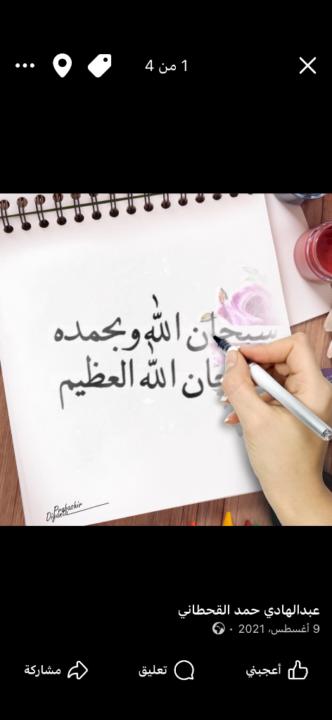 1 من 4
سبحان الله وبحمده
سبحان الله العظيم
عبدالهادي حمد القحطاني
9 أغسطس، 2021 ·
أعجبني
تعليق
مشاركة